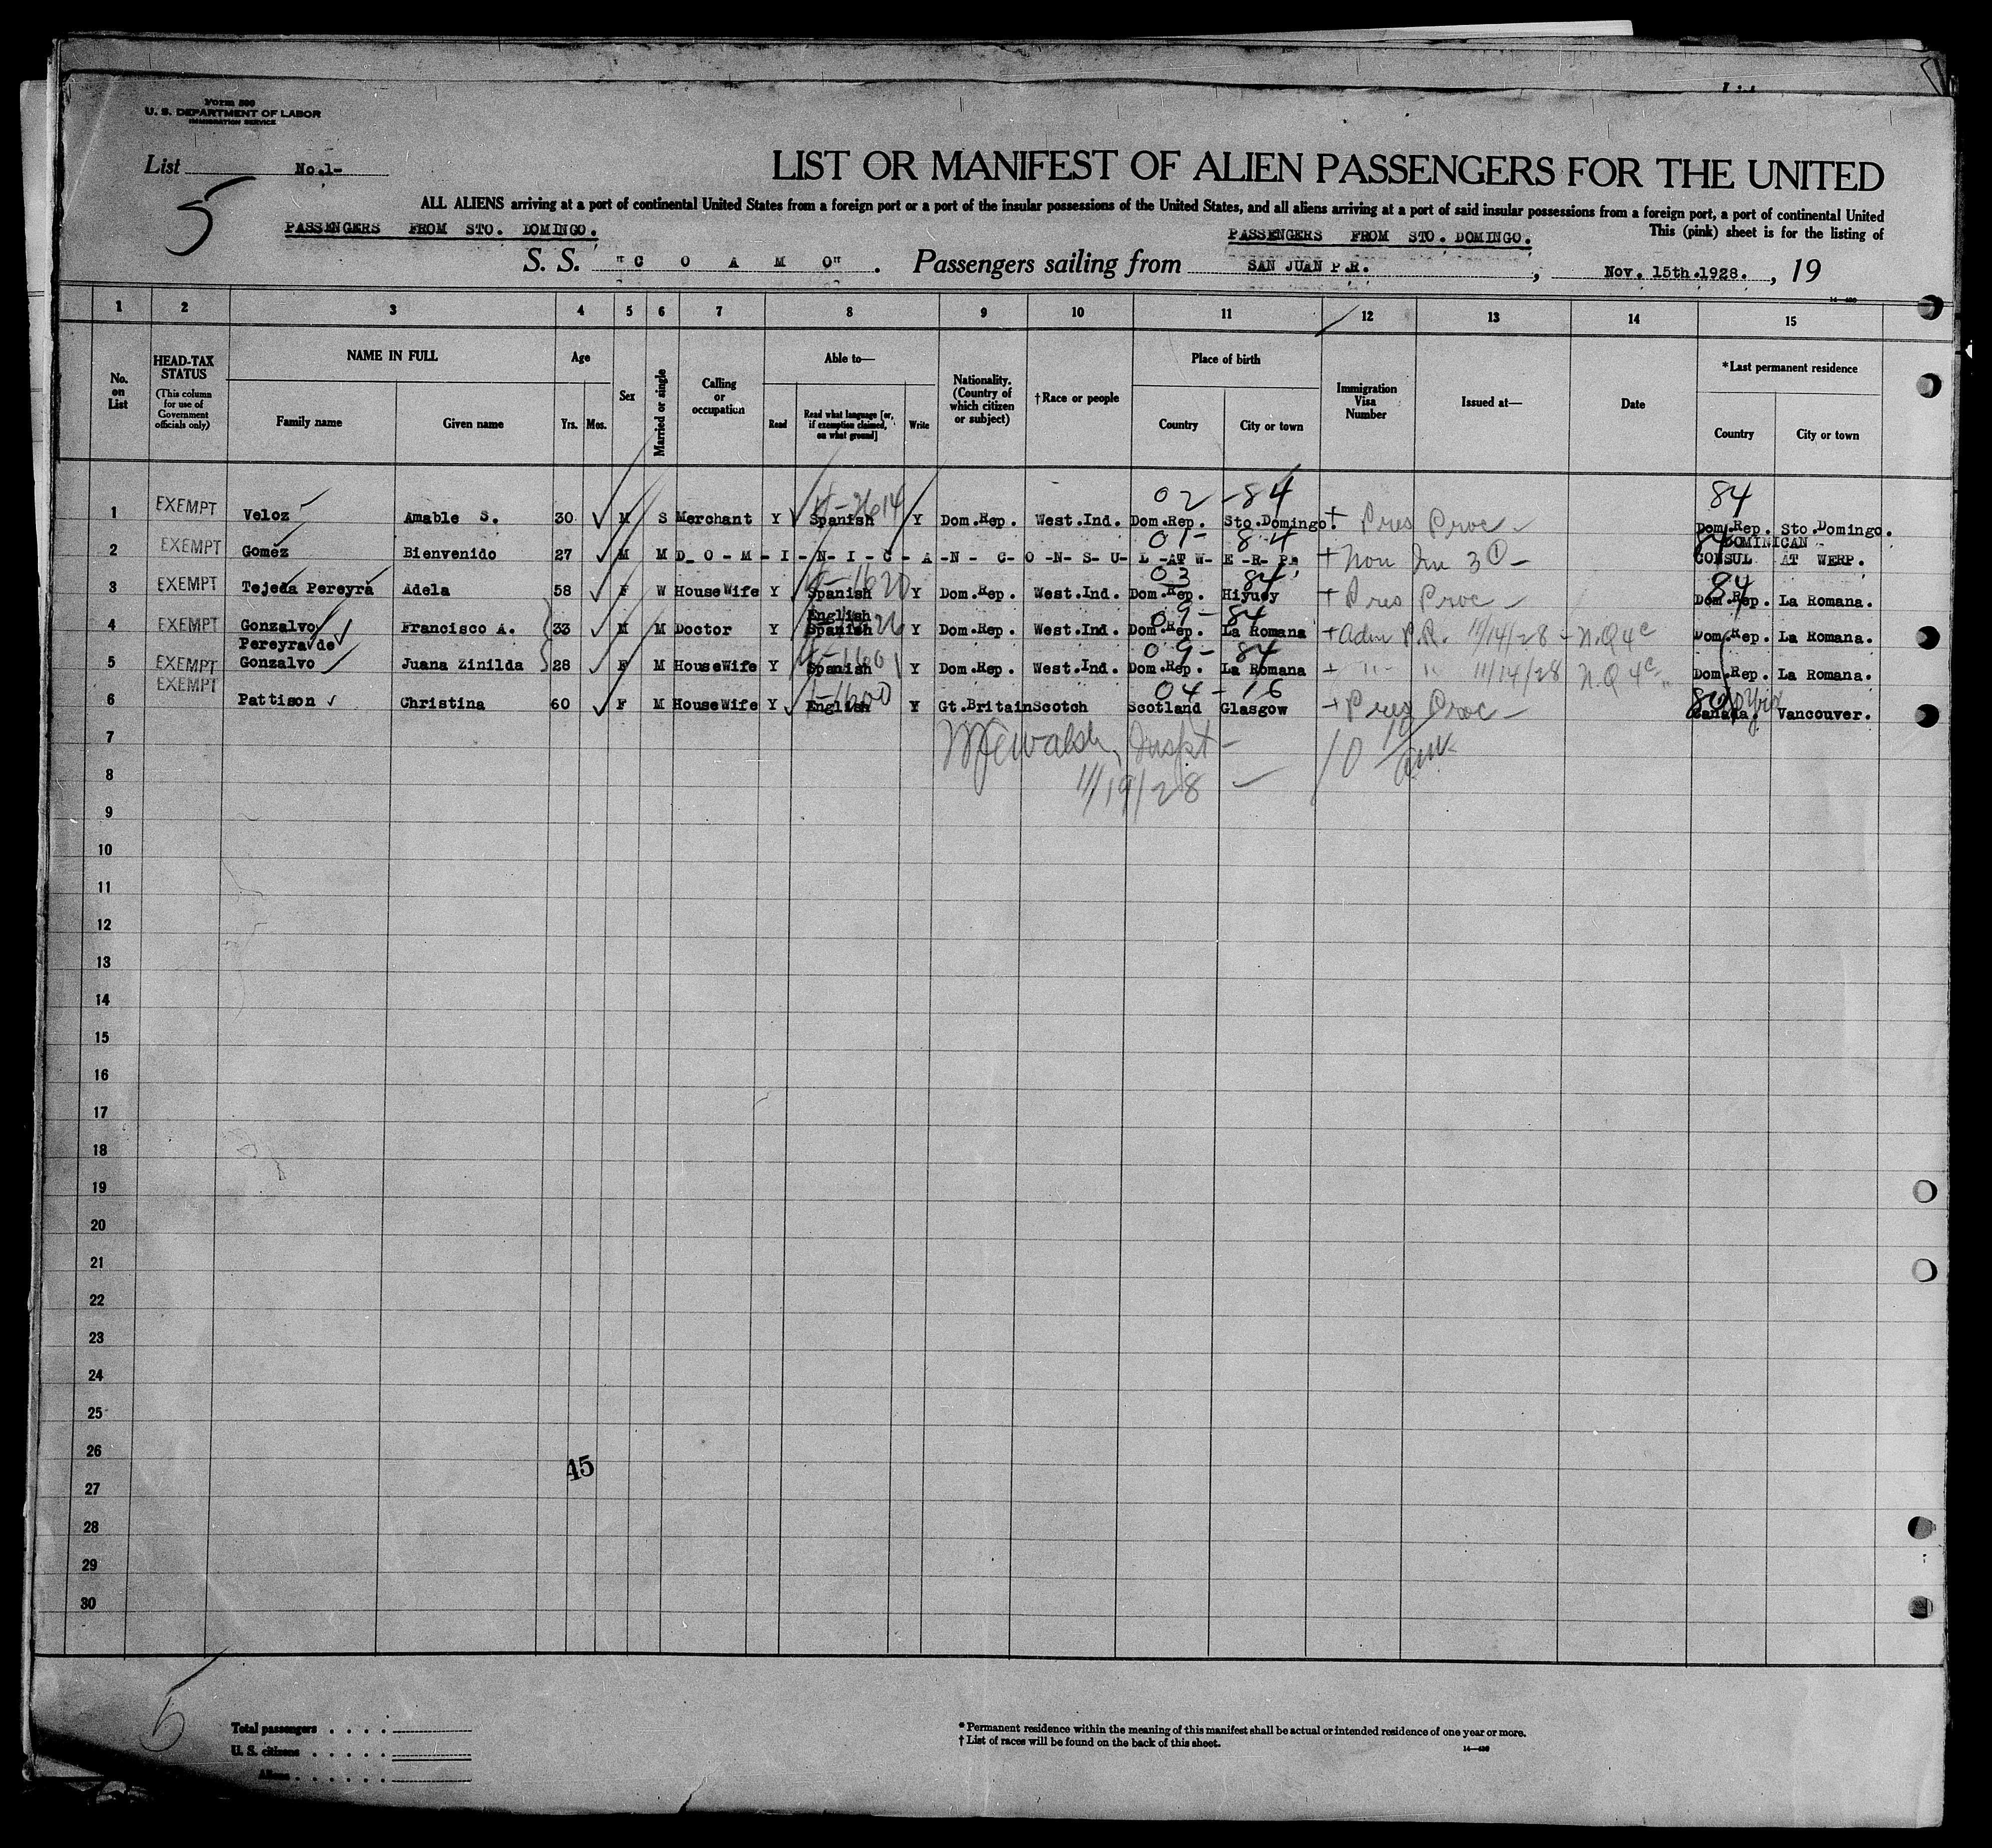 Form 500
U. S. DEPARTMENT OF LABOR
IMMIGRATION SERVICE
List No.1-
5
LIST OR MANIFEST OF ALIEN PASSENGERS FOR THE UNITED
ALL ALIENS arriving at a port of continental United States from a foreign port or a port of the insular possessions of the United States, and all aliens arriving at a port of said insular possessions from a foreign port, a port of continental United
This (pink) sheet is for the listing of
PASSENGERS FROM STO. DOMINGO. PASSENGERS FROM STO. DOMINGO.
S. S. "C O A M O". Passengers sailing from SAN JUAN P.R. , Nov. 15th.1928. , 19
1 2 3 4 5 6 7 8 9 10 11 12 13 14 15
No. on List
HEAD-TAX STATUS (This column for use of Government officials only)
NAME IN FULL Family name Given name
Age Yrs. Mos.
Sex
Married or single
Calling or occupation
Able to— Read Read what language [or, if exemption claimed, on what ground] Write
Nationality. (Country of which citizen or subject)
†Race or people
Place of birth Country City or town
Immigration Visa Number
Issued at—
Date
*Last permanent residence Country City or town
02 -84 84
1 EXEMPT Veloz Amable S. 30 M S Merchant Y Spanish Y Dom.Rep. West.Ind. Dom.Rep. Sto.Domingo. + Pres Proc - Dom.Rep. Sto.Domingo.
01- 84
2 EXEMPT Gomez Bienvenido 27 M M D-O-M-I-N-I-C-A-N- C-O-N-S-U-L-AT W-E-R-P. + Non Im 3 1 - DOMINICAN CONSUL AT WERP.
03 84 84
3 EXEMPT Tejeda Pereyra Adela 58 F W HouseWife Y Spanish Y Dom.Rep. West.Ind. Dom.Rep. Hiyuey + Pres Proc - Dom.Rep. La Romana.
English 09- 84
4 EXEMPT Gonzalvo Francisco A. 33 M M Doctor Y Spanish Y Dom.Rep. West.Ind. Dom.Rep. La Romana + Adm P.R. 11/14/28 - N.Q 4c Dom.Rep. La Romana.
Pereyra de 09- 84
5 EXEMPT Gonzalvo Juana Zinilda 28 F M HouseWife Y Spanish Y Dom.Rep. West.Ind. Dom.Rep. La Romana + " " 11/14/28 N.Q 4c Dom.Rep. La Romana.
EXEMPT 04-16
6 Pattison Christina 60 F M HouseWife Y English Y Gt.Britain Scotch Scotland Glasgow + Pres Proc - Canada. Vancouver.
7
Walsh, Inspt -
10
8
11/19/28
9
10
11
12
13
14
15
16
17
18
19
20
21
22
23
24
25
26
45
27
28
29
30
5
Total passengers . . . .
U. S. citizens . . . . .
Aliens . . . . . .
* Permanent residence within the meaning of this manifest shall be actual or intended residence of one year or more.
† List of races will be found on the back of this sheet.
14—430